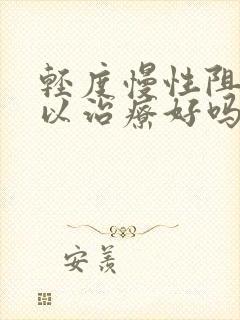 轻度慢性阻
以治疗好吗
安羡